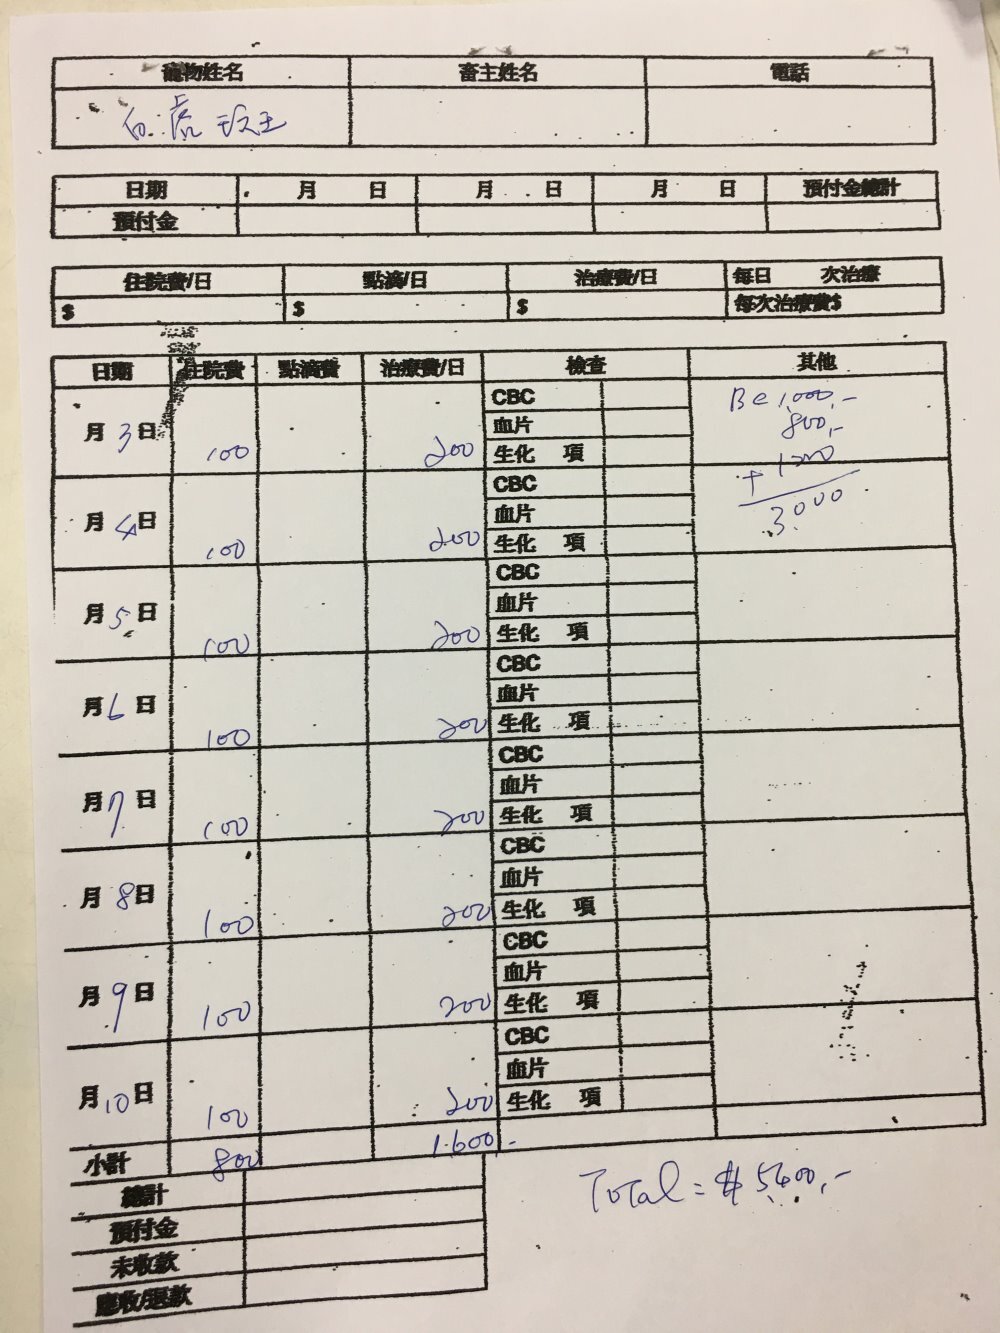 寵物姓名 畜主姓名 電話
白.虎 班主
日期 月 日 月 日 月 日 預付金總計
預付金
住院費/日 點滴/日 治療費/日 每日 次治療
$ $ $ 每次治療費$
日期 住院費 點滴費 治療費/日 檢查 其他
CBC Be 1,000,-
月 3 日 血片 800,-
100 200 生化 項 + 1200
CBC 3000
月 4 日 血片
100 200 生化 項
CBC
月 5 日 血片
100 200 生化 項
CBC
月 6 日 血片
100 200 生化 項
CBC
月 7 日 血片
100 200 生化 項
CBC
月 8 日 血片
100 200 生化 項
CBC
月 9 日 血片
100 200 生化 項
CBC
月 10 日 血片
100 200 生化 項
小計 800 1600.-
總計
Total = $ 5400,-
預付金
未收款
應收/退款